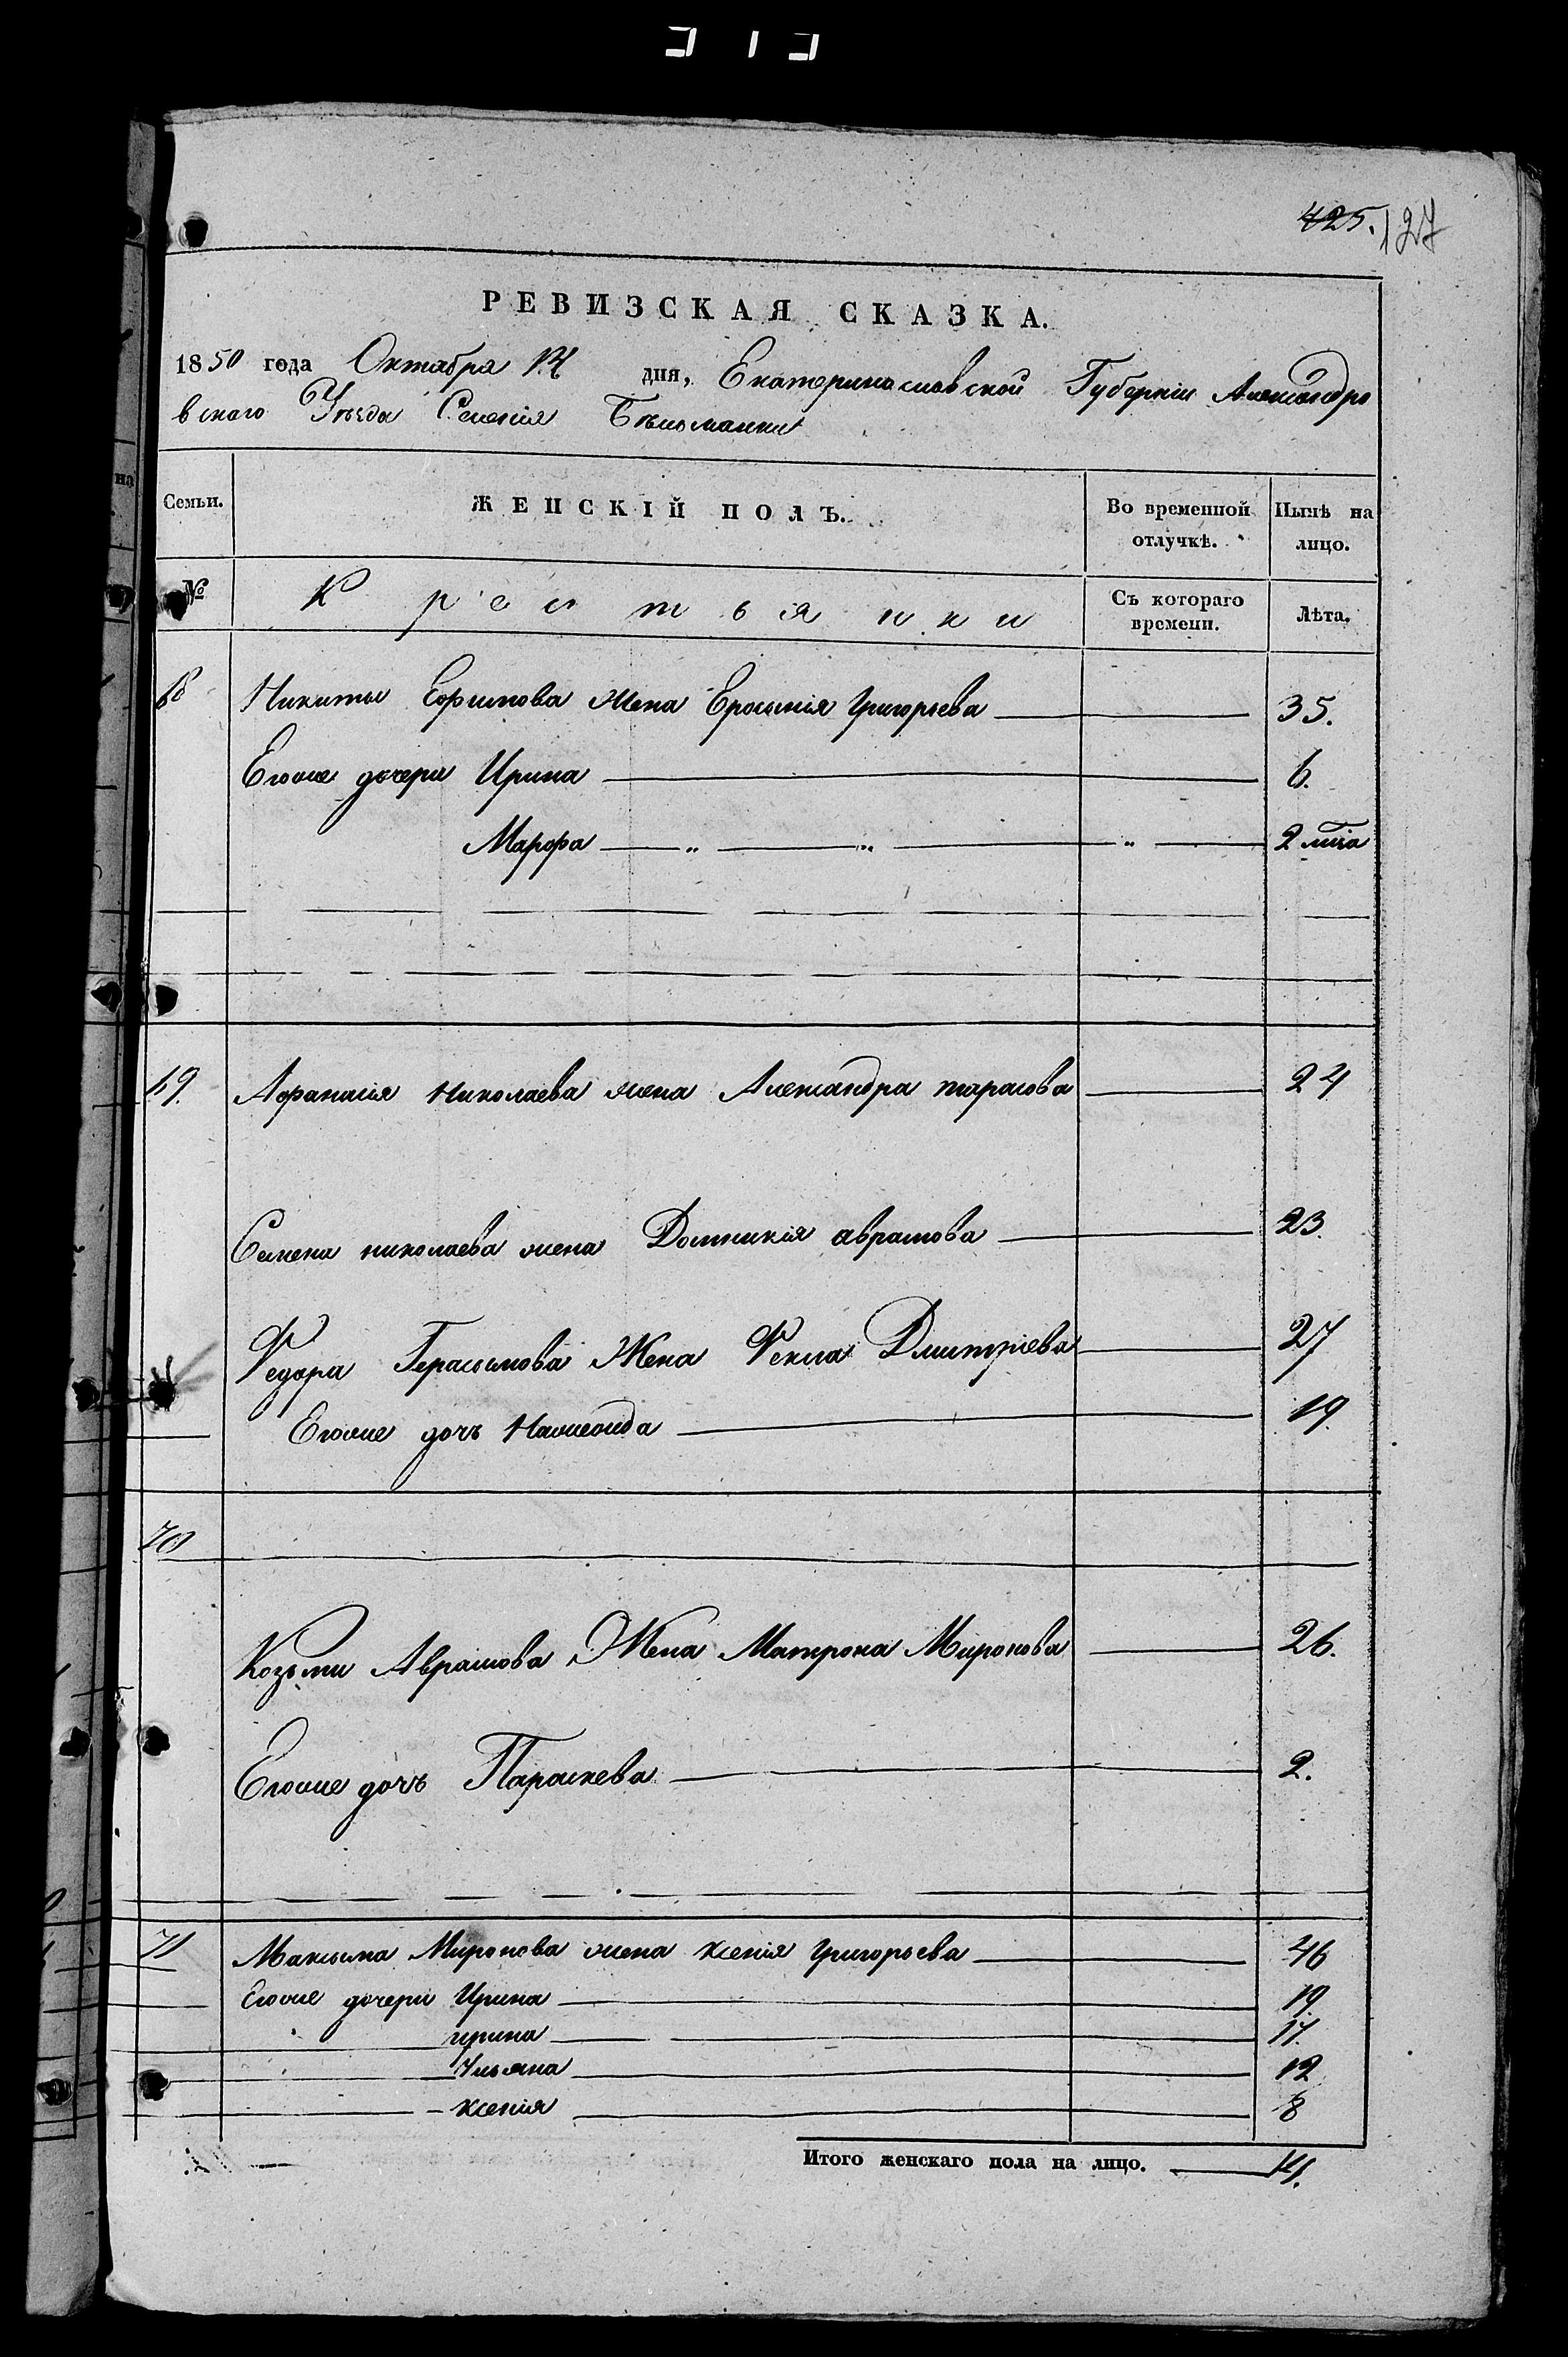 425. 127
РЕВИЗСКАЯ СКАЗКА.
1850 года Октября дня, Екатеринославской Губернiи Александро
вскаго Уѣзда Селенiя Бѣльманки
Семьи. ЖЕНСКIЙ ПОЛЪ. Во временной отлучкѣ. Нынѣ на лицо.
№ Крестьянки Съ котораго времени. Лѣта.
68 Никиты Ефимова жена Ефросинiя Григорьева 35.
Егоже дочери Ирина 6.
Марфа 2 мца
69. Афанасiя Николаева жена Александра тарасова 24
Семена николаева жена Домникiя аврамова 23.
Ѵедора Герасимова Жена Ѵекла Дмитрiева 27
Егоже дочь 19.
70
Козьми Аврамова Жена Матрона Миронова 26.
Егоже дочь Параскева 2.
71 Максима Миронова жена ксенiя Григорьева 46
Егоже дочери Ирина 19.
ирина 17.
Ульяна 12
ксенiя 8
Итого женскаго пола на лицо. 14.